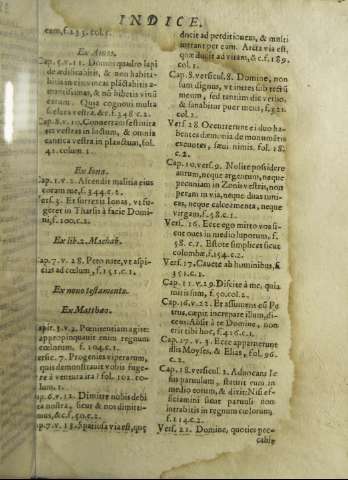 INDICE.
eam, f.235. col.1.
Ex Amos.
Cap.5.v.11. Domos quadro lapi
de ædificabitis, & non habita-
bitis in eis: vineas plãtabitis a-
mantissimas, & nõ bibetis vinũ
earum. Quia cognoui multa
scelera vestra. &c. f.348 c.2.
Cap.8.v.10. Conuertam festiuita
tes vestras in luctum, & omnia
cantica vestra in planctum, fol.
42. colum.1.
Ex Iona.
Cap.1.v.2. Ascendit malitia eius
coram me, f.344.c.1.
Vers.3. Et surrexit Ionas, vt fu-
geret in Tharsis à facie Domi-
ni, f.100.c.2.
Ex lib.2. Machab.
Cap.7.v.28. Peto nate, vt aspi-
cias ad cœlum, f.151.c.1.
Ex nouo testamento.
Ex Mattheo.
Capit.3.v.2. Pœnitentiam agite:
appropinquauit enim regnum
cœlorum, f.104.c.1.
Versic.7. Progenies viperarum,
quis demonstrauit vobis fuge-
re à ventura ira? fol. 102. co-
lum.1.
Cap.6.v.12. Dimitte nobis debi
ta nostra, sicut & nos dimitti-
mus, & c.f.50.c.2.
Cap.7.v.13. Spatiosa via est, quę
ducit ad perditionem, & multi
intrant per eam. Arcta via est,
quæ ducit ad vitam, & c.f.189.
col.1.
Cap.8.versicul.8. Domine, non
sum dignus, vt intres sub tectũ
meum, sed tantùm dic verbo,
& sanabitur puer meus, f.321.
col.1.
Vers.28 Occurrerunt ei duo ha-
bentes dæmonia de monumẽtis
exeuntes, sæui nimis. fol.18.
c.2.
Cap.10.vers.9. Nolite possidere
aurum, neque argentum, neque
pecuniam in Zonis vestris, non
peram in via, neque duas tuni-
cas, neque calceamenta, neque
virgam, f.58.c.1.
Vers.16. Ecce ego mitto vos si-
cut oues in medio luporum, f.
58. c.1. Estote simplices sicut
columbæ, f.154.c.2.
Vers.17. Cauete ab hominibus, f.
351.c.1.
Cap.11.v.29. Discite à me, quia
mitis sum, f.50.col.2.
Cap.16.v.22. Et assumens eũ Pe
trus, cœpit increpare illum, di-
cens: Absit à te Domine, non
erit tibi hoc, f.426.c.1.
Cap.17.v.3. Ecce apparuerunt
illis Moyses, & Elias, fol.96.
c.2.
Cap.18.versicul.2. Aduocans Ie-
sus paruulum, statuit eum in
medio eorum, & dixit: Nisi ef-
ficiamini sicut paruuli non
intrabitis in regnum cœlorum,
f.114.c.2.
Vers.21. Domine, quoties pec-
cabit